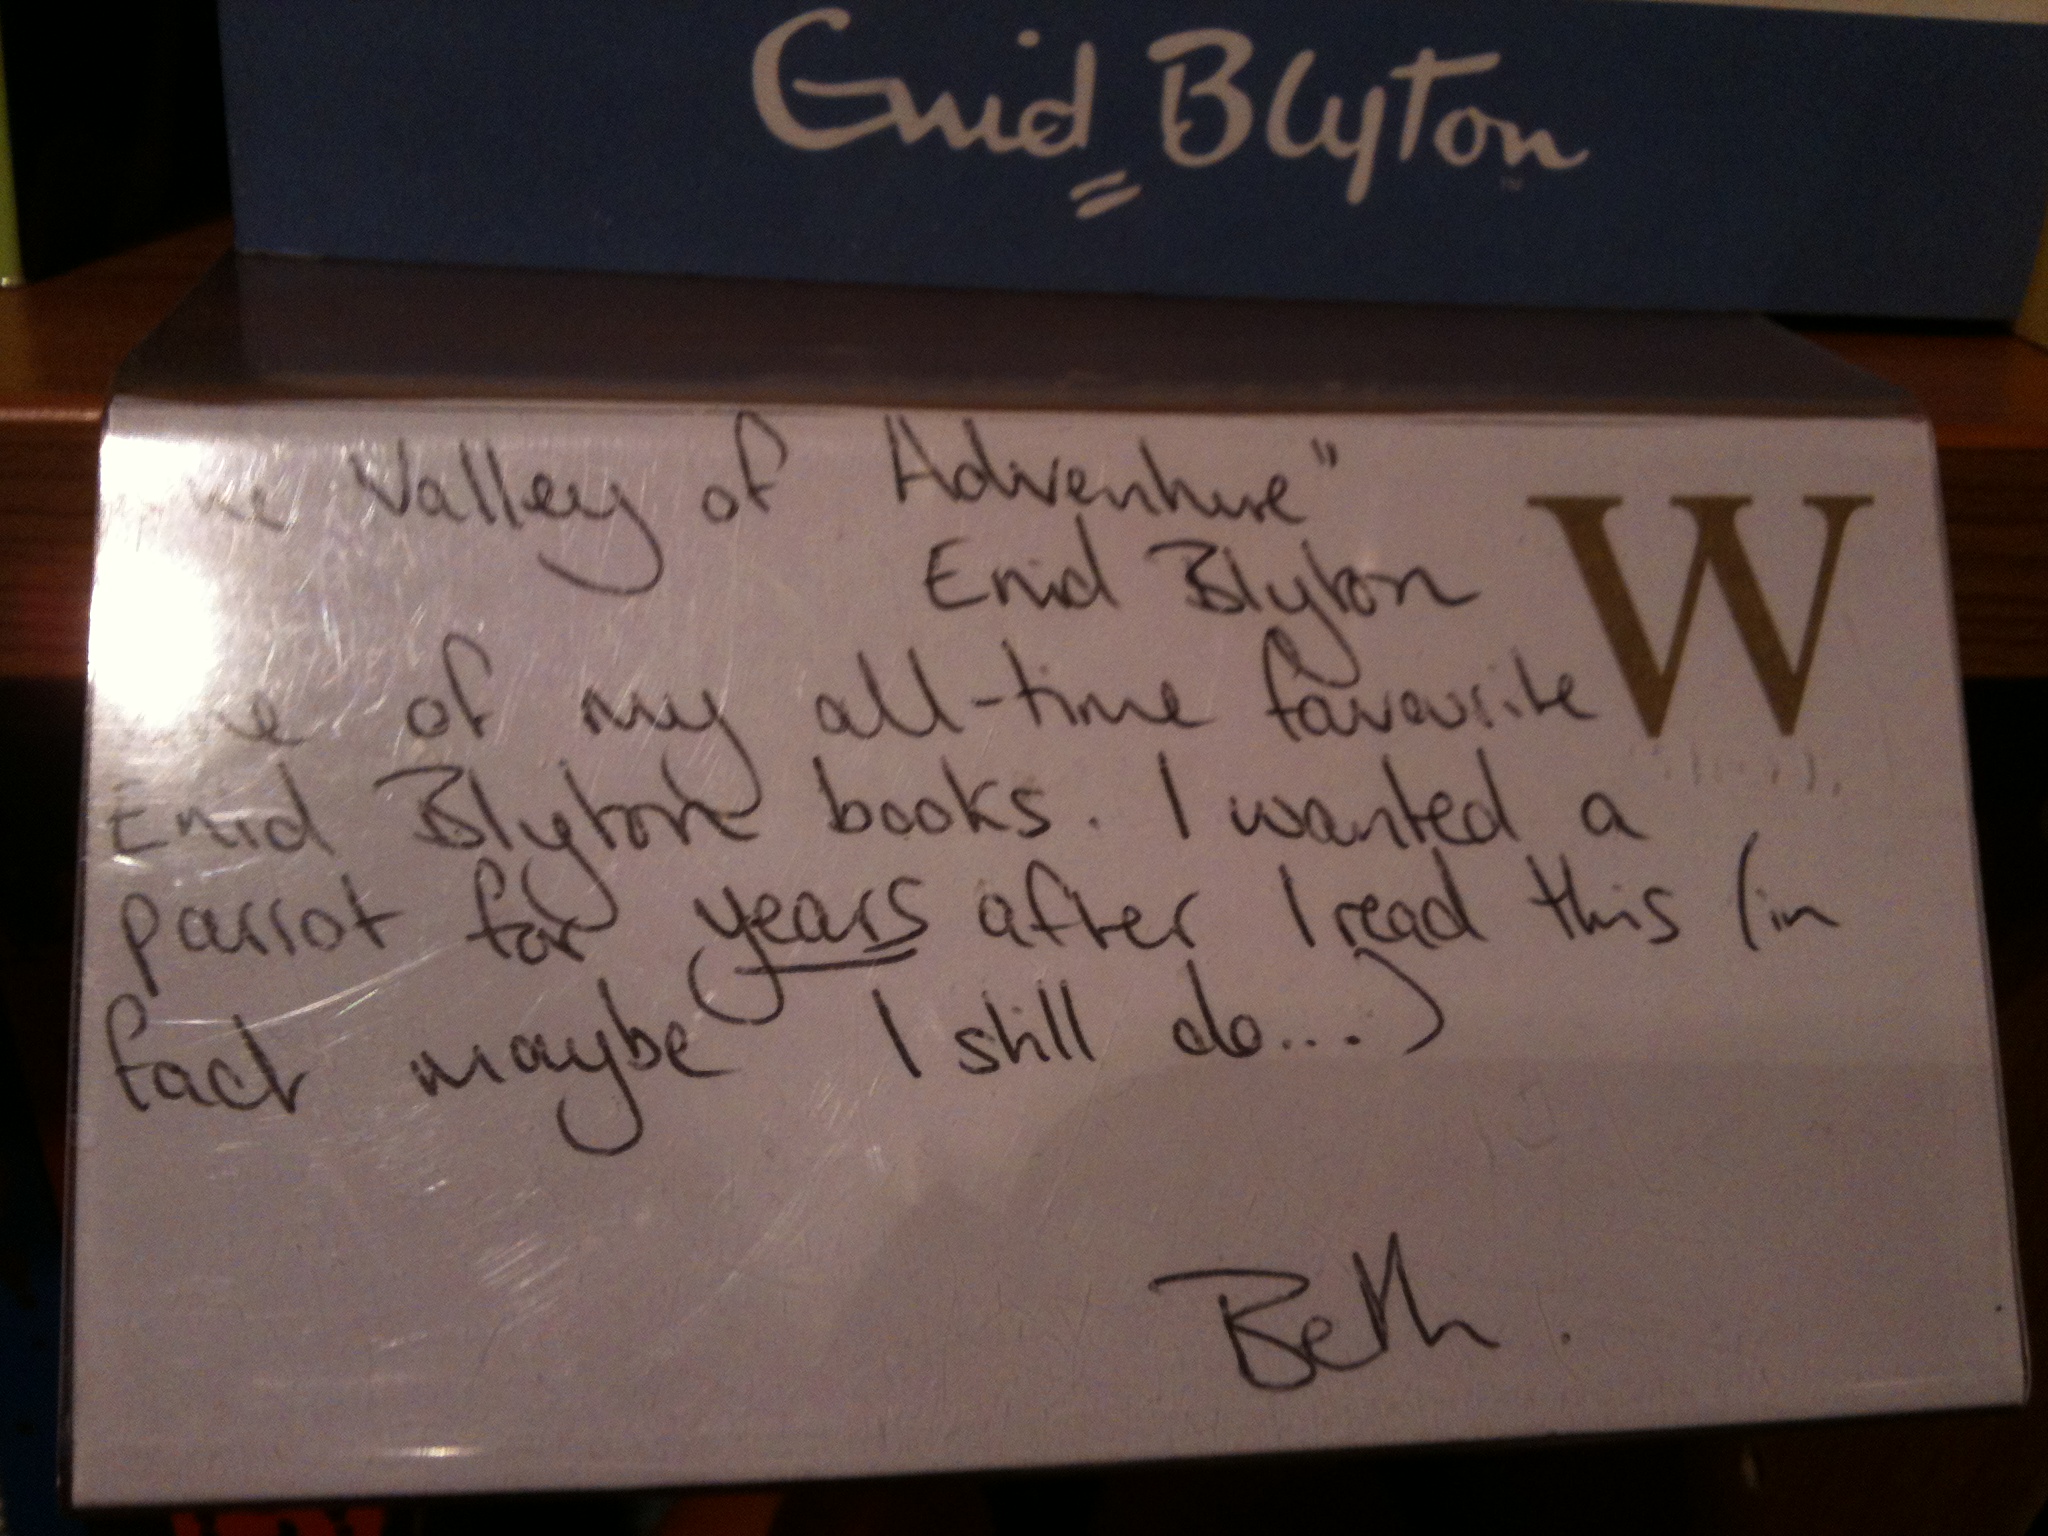 Enid Blyton
Valley of Adventure"
Enid Blyton
W
of my all-time favourite
Enid Blyton books. I wanted a
parrot for years after I read this (in
fact maybe I still do....)
Beth.